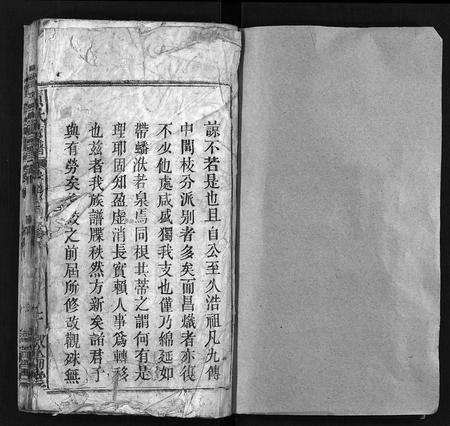 諒不若是也且自公至久浩祖凡九傳
中間枝分派別者多矣而昌熾者亦復
不少他處咸咸獨我支也僅乃綿延如
帶蟠泆若泉焉同根共蒂之謂何有是
理耶固知盈虛消長實賴人事為轉移
也茲者我族譜牒秩然方新矣諸君子
與有勞矣之前屆所修改觀殊無